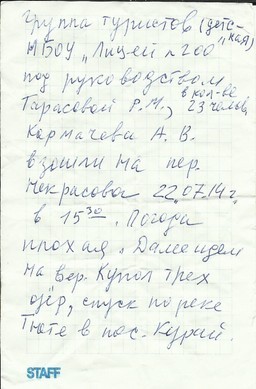 Группа туристов (детс-
кая)
МБОУ „Лицей №200"
под руководством
Тарасовой Р.М., в кол-ве
23 челов.
Кормачева А. В.
взошли на пер.
Некрасова 22.07.14 г.
в 15³⁰. Погода
плохая. Далее идем
на вер. Купол трех
озёр, спуск по реке
Тюте в пос. Курай.
STAFF